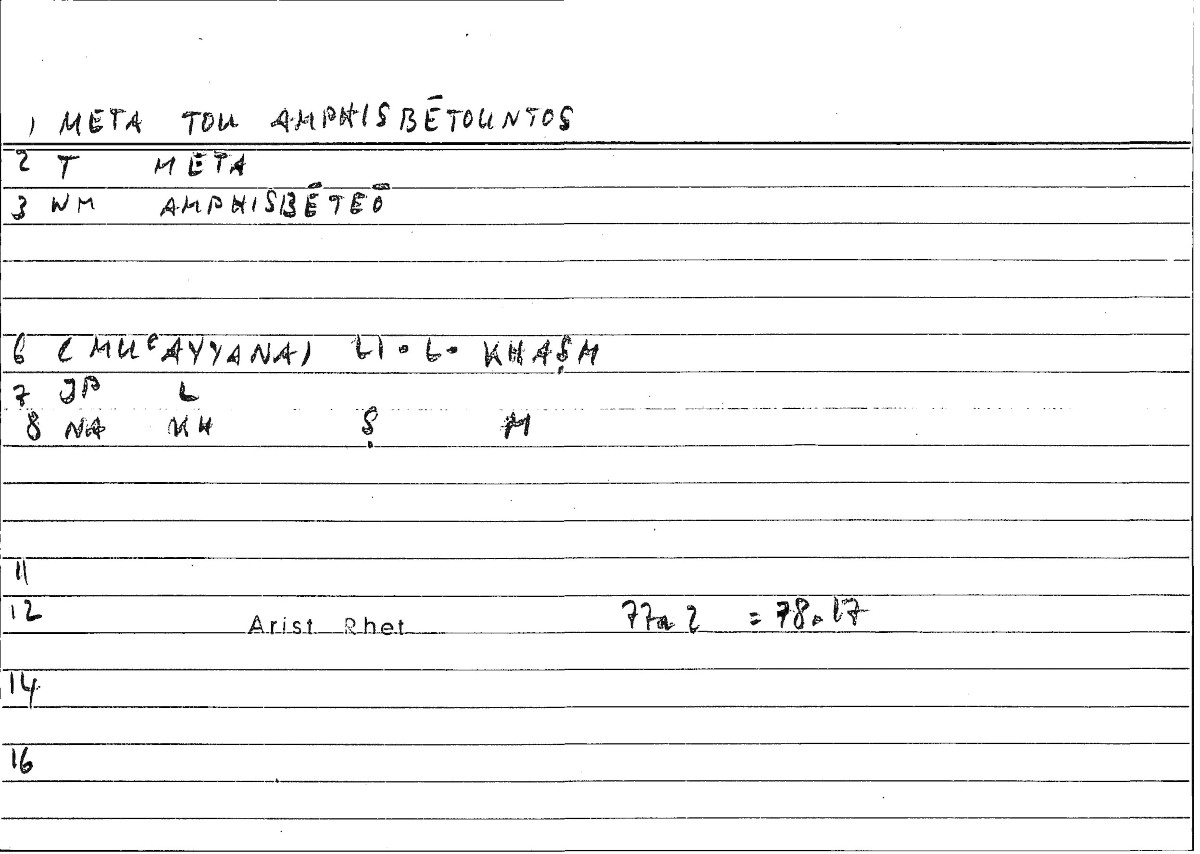 1 META TOU AMPHISBĒTOUNTOS
2 T META
3 WM AMPHISBĒTEŌ
6 (MUʿAYYANA) LI.L.KHAṢM
7 JP L
8 NA KH Ṣ M
11
12 Arist Rhet 77a2 = 78.17
14
16